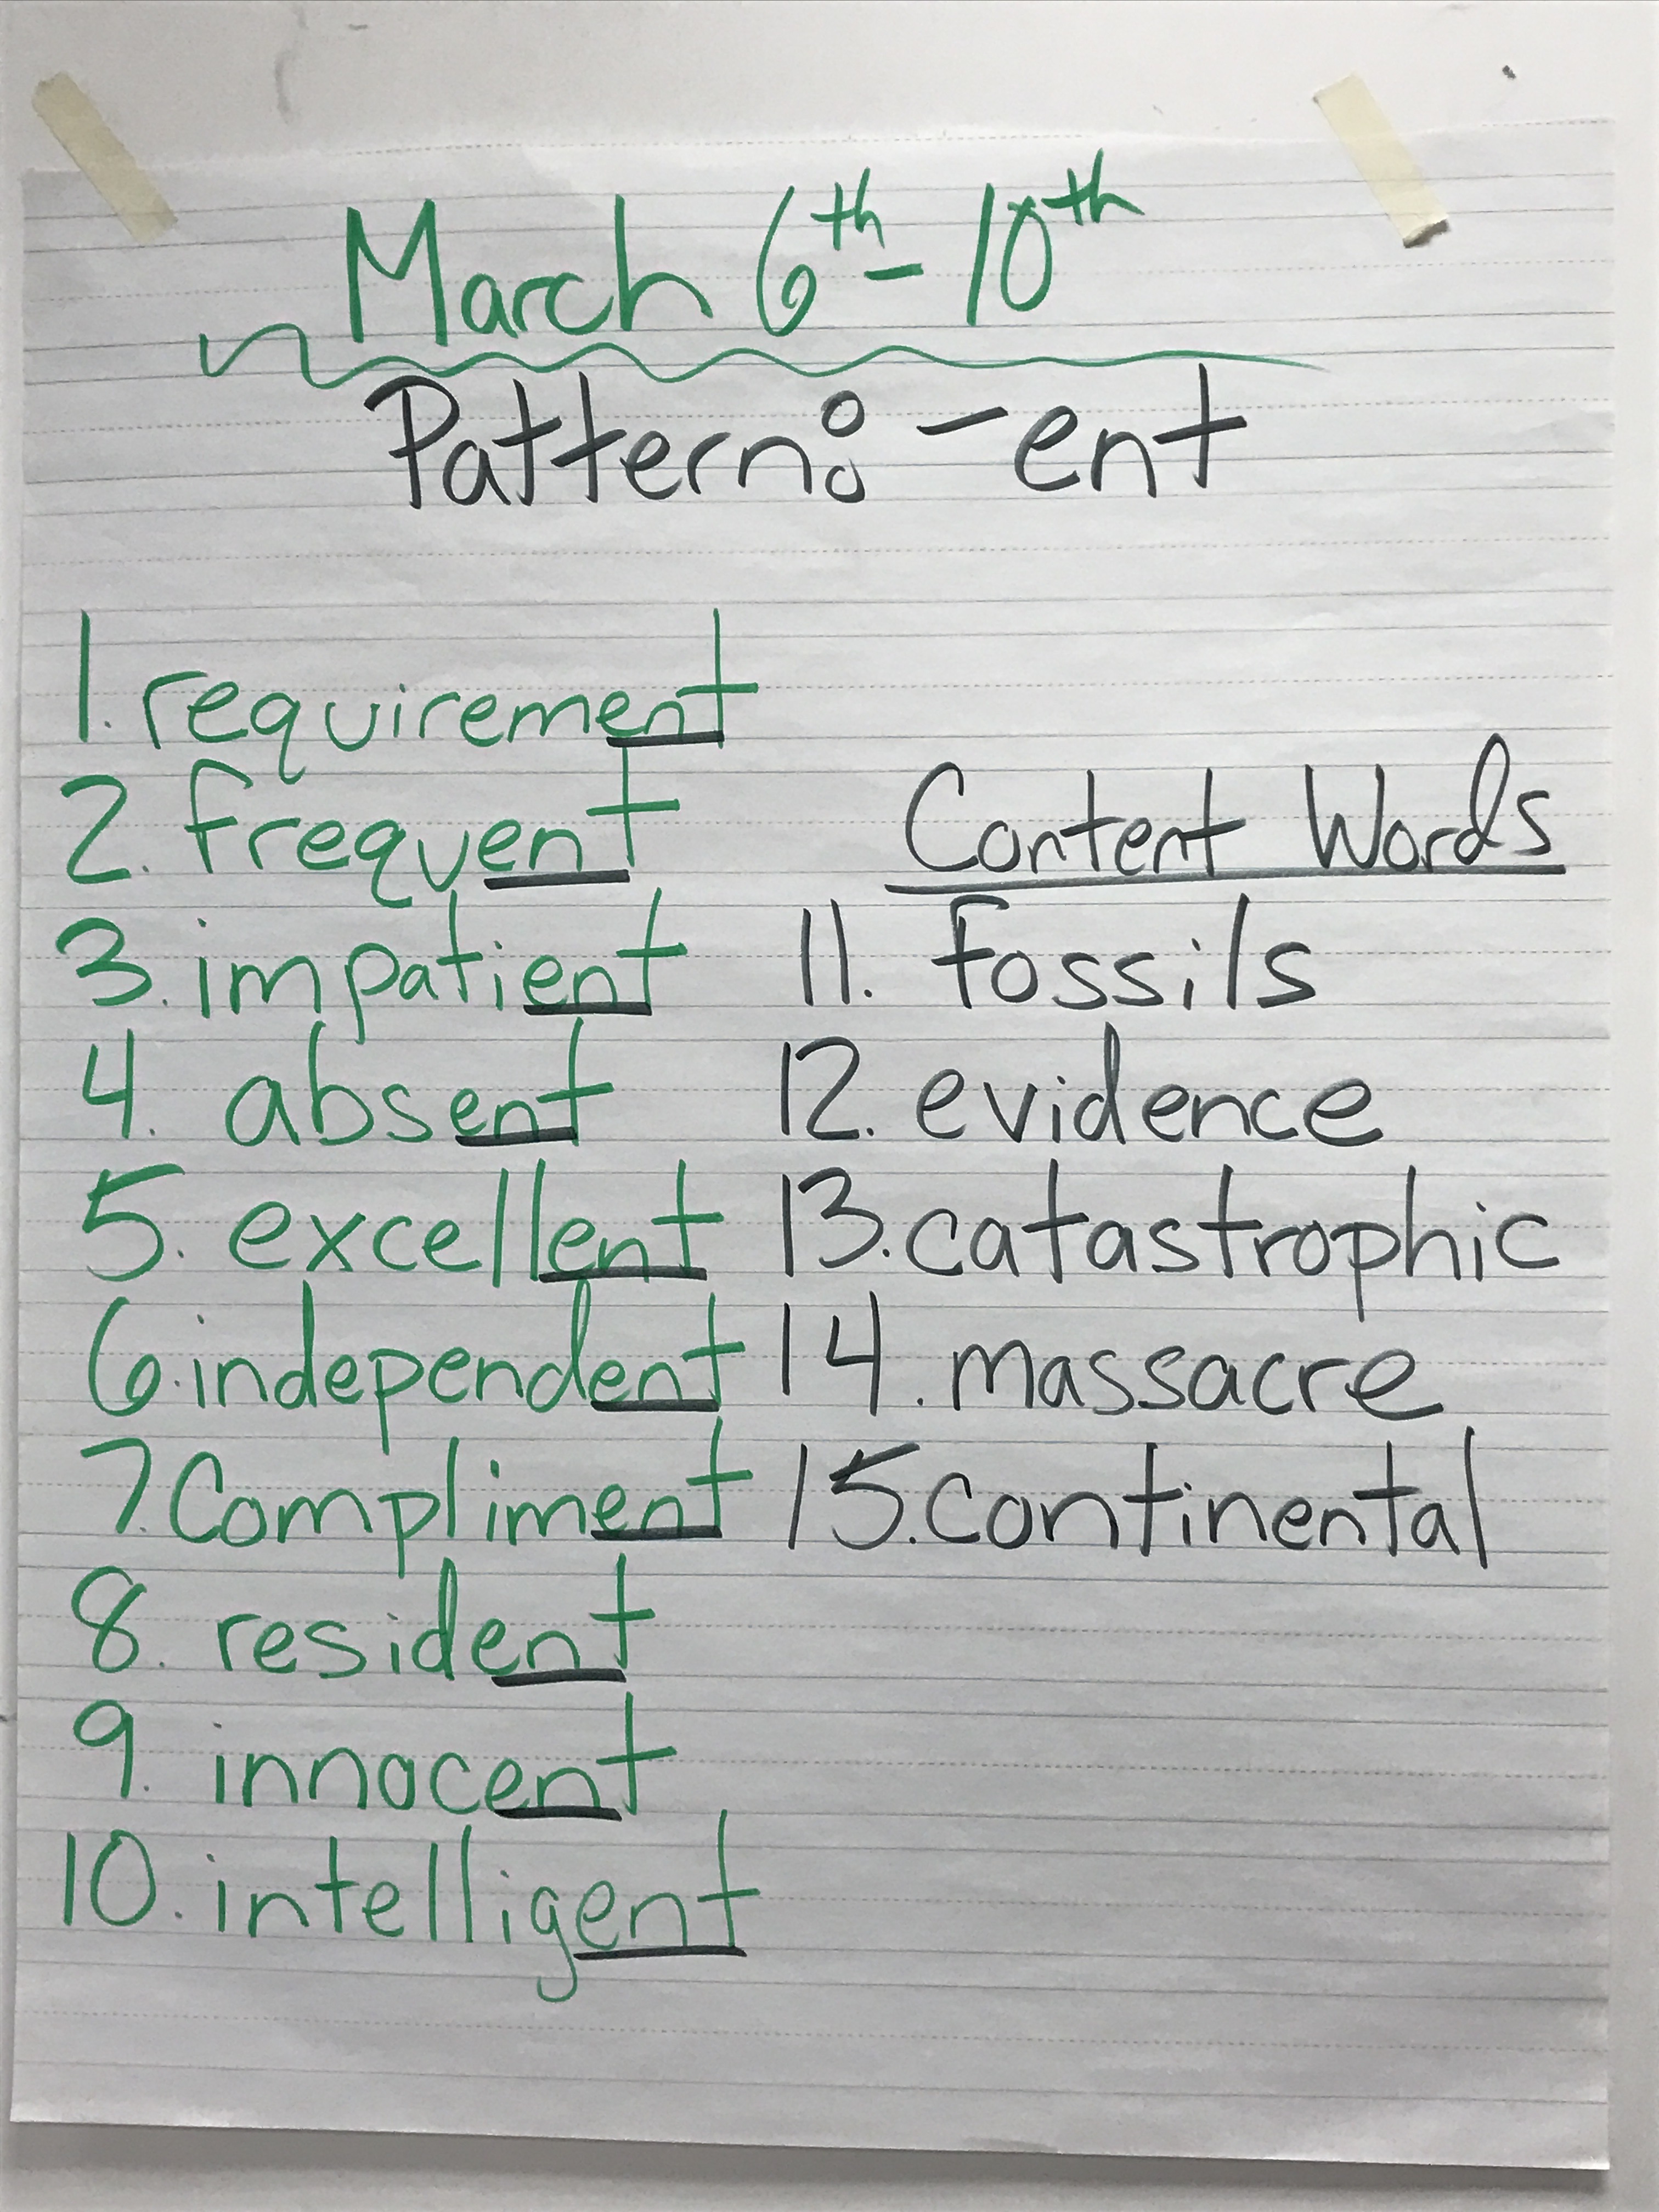 March 6th - 10th
Pattern: -ent
1. requirement
2. frequent
3. impatient
4. absent
5. excellent
6. independent
7. Compliment
8. resident
9. innocent
10. intelligent
Content Words
11. fossils
12. evidence
13. catastrophic
14. massacre
15. continental